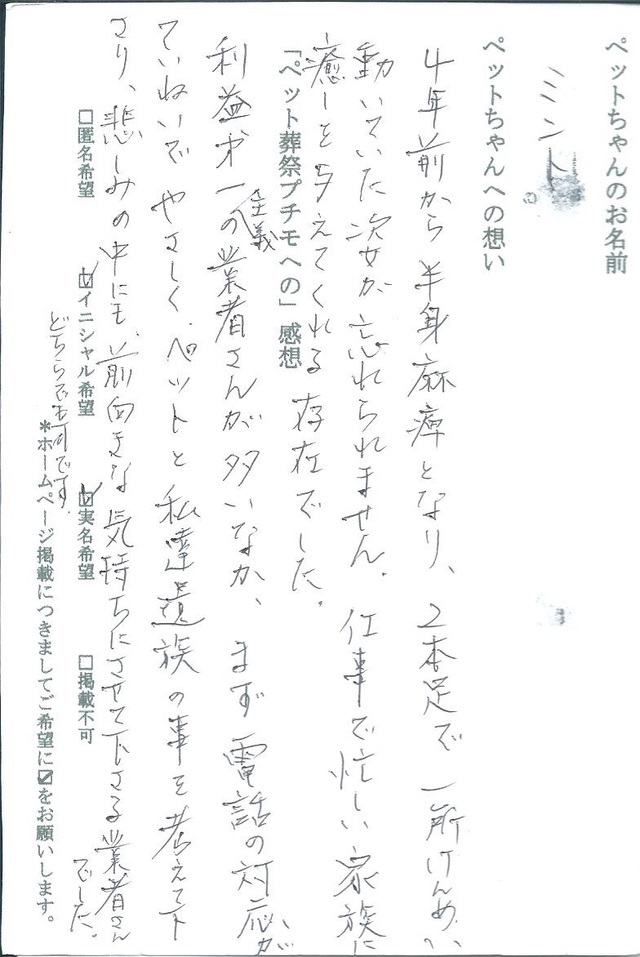 ペットちゃんのお名前
ミント
ペットちゃんへの想い
4年前から半身麻痺となり、2本足で一所けんめい
動いていた次女が忘れられません。仕事で忙しい家族に
癒しを与えてくれる存在でした。
「ペット葬祭プチモへの」感想
利益才一主義の業者さんが多いなか、まず電話の対応が
ていねいでやさしく、ペットと私達遺族の事を考えて下
さり、悲しみの中にも、前向きな気持ちにさせて下さる業者さん
でした。
□匿名希望 ☑イニシャル希望 ☑実名希望 □掲載不可
どちらでも可です。
*ホームページ掲載につきましてご希望に☑をお願いします。